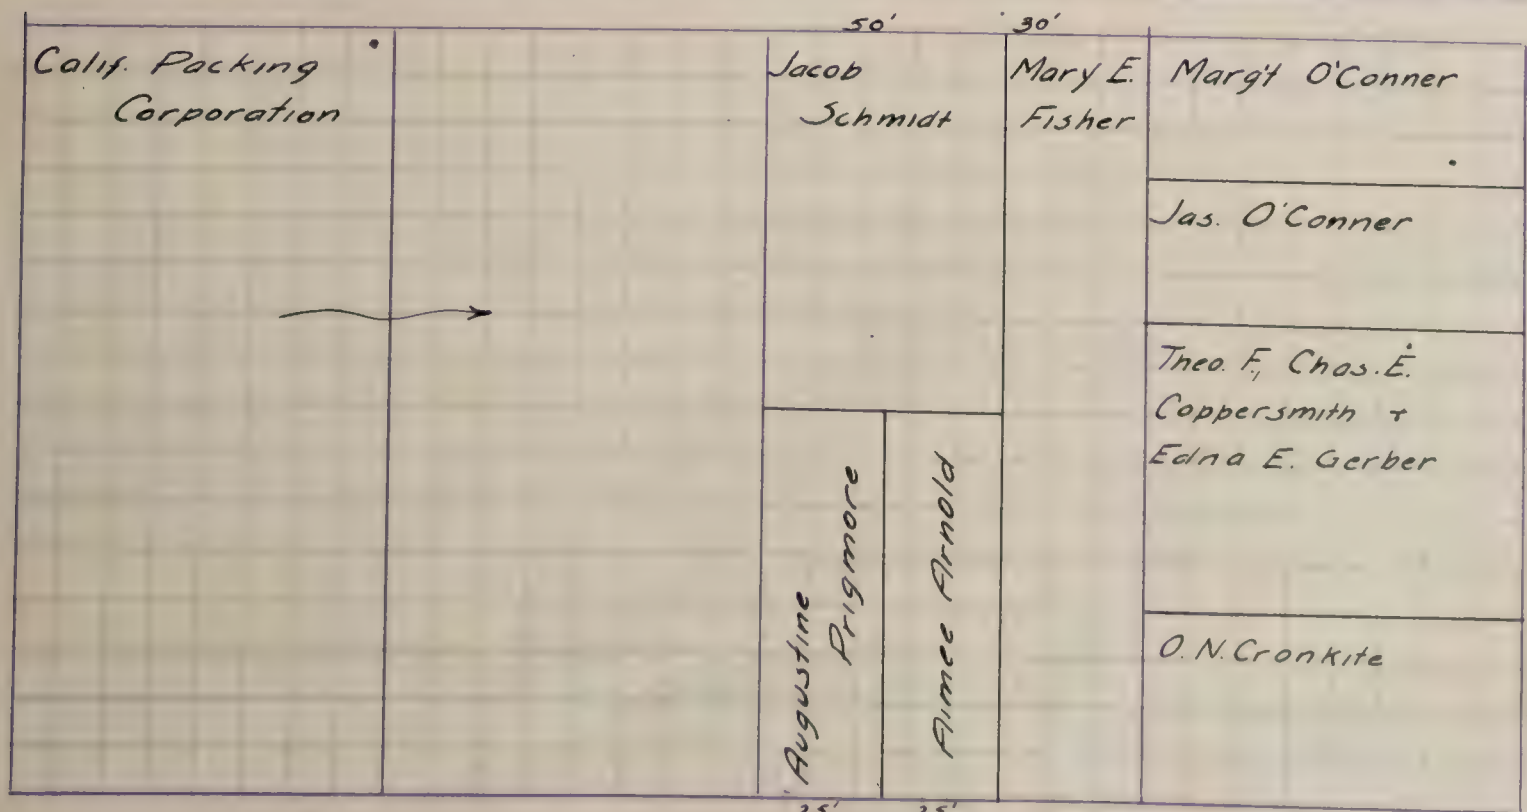 50'
30'
Calif. Packing
Corporation
Jacob
Schmidt
Mary E.
Fisher
Marg't O'Conner
Jas. O'Conner
Theo. F., Chas. E.
Coppersmith +
Edna E. Gerber
Augustine
Prigmore
Aimee Arnold
O. N. Cronkite
25'
25'